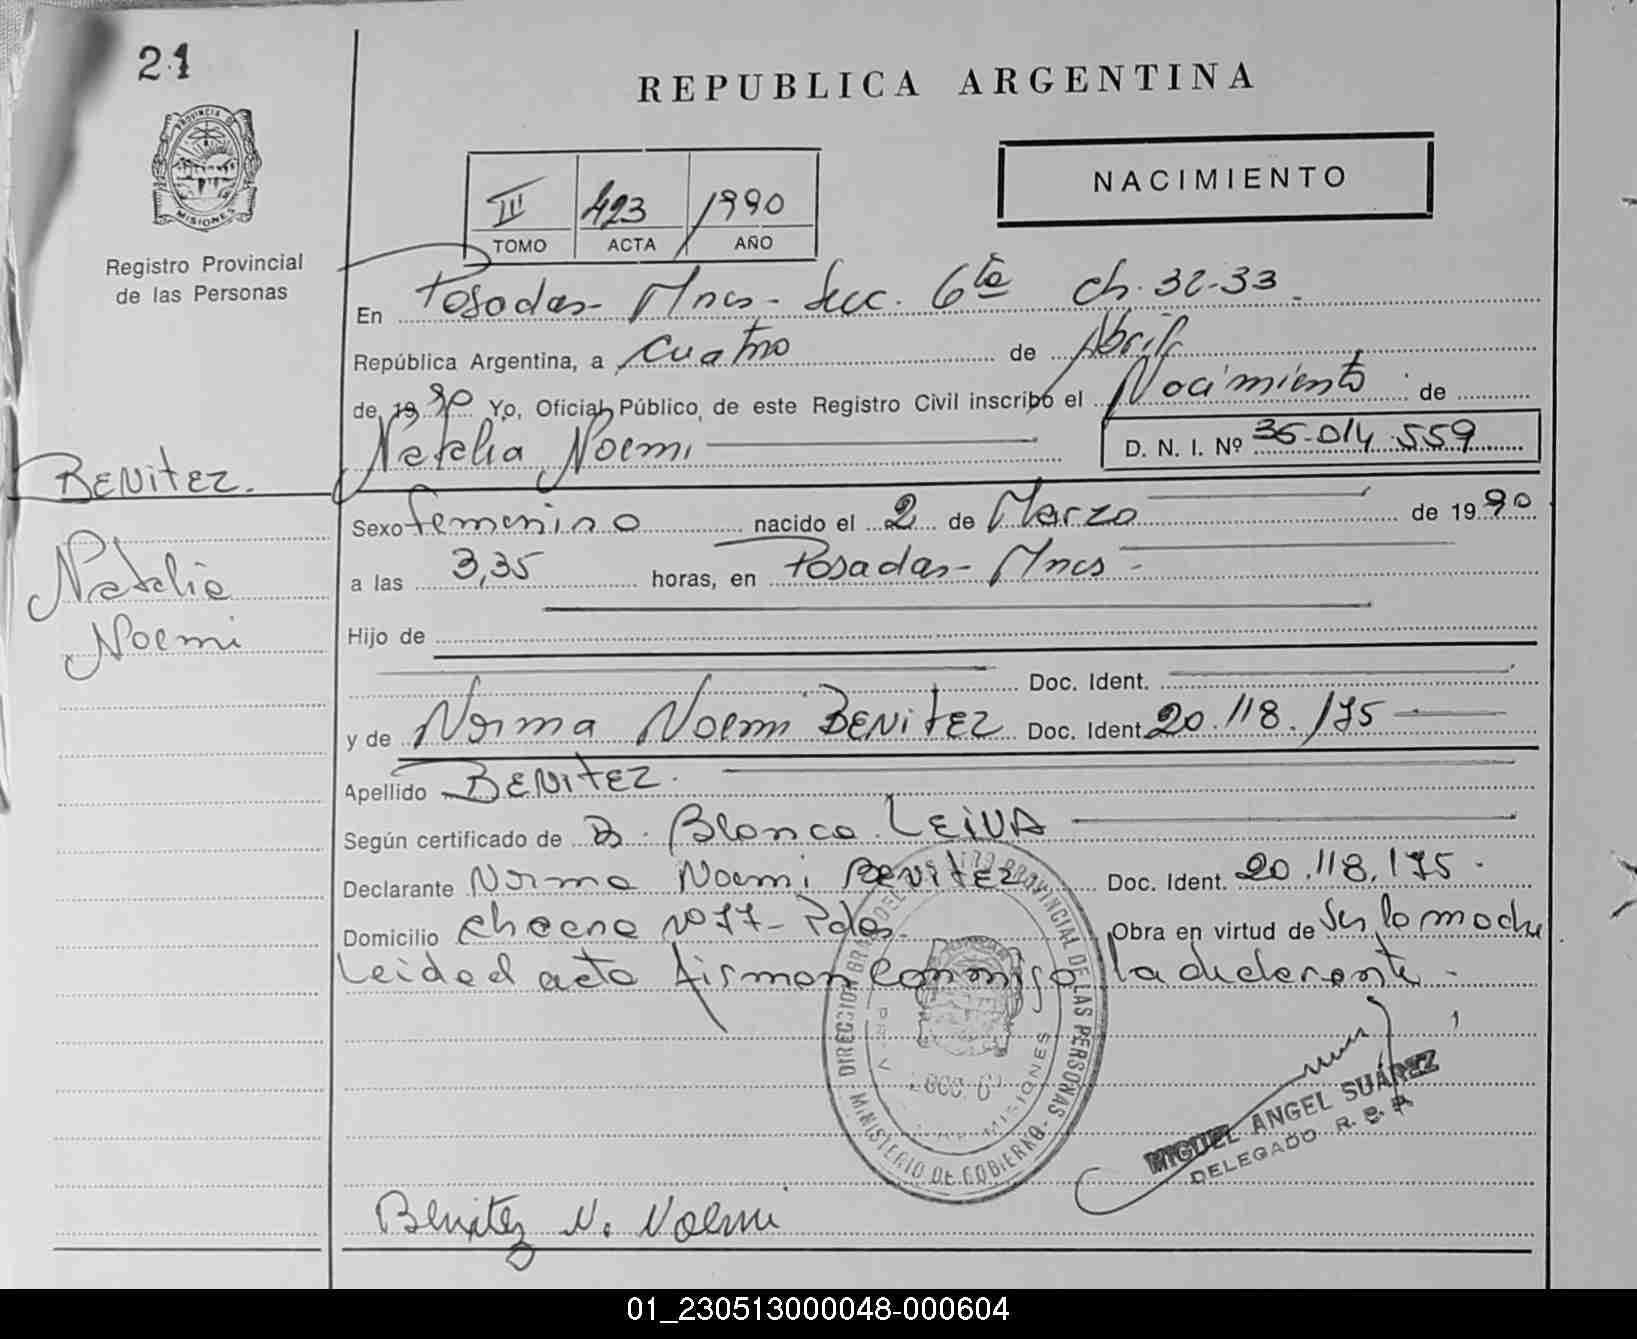 21
REPUBLICA ARGENTINA
PROVINCIA DE
MISIONES
Registro Provincial
de las Personas
NACIMIENTO
III 423 1990
TOMO ACTA AÑO
En Posadas - Mnes - Secc. 6ta ch. 32-33
República Argentina, a cuatro de Abril
de 1990 Yo, Oficial Público de este Registro Civil inscribo el Nacimiento de
Natalia Noemi D. N. I. Nº 35.014.559
BENITEZ.
Natalia
Noemi
Sexo femenino nacido el 2 de Marzo de 1990
a las 3,35 horas, en Posadas - Mnes -
Hijo de
Doc. Ident.
y de Norma Noemi BENITEZ Doc. Ident. 20.118.175
Apellido BENITEZ.
Según certificado de D. Blanca LEIVA
Declarante Norma Noemi BENITEZ Doc. Ident. 20.118.175.
Domicilio chacra nº 77 - Pdas. Obra en virtud de ser la madre
Leida el acta firman conmigo la declarante -
DIRECCION GRAL DEL REGISTRO PROVINCIAL DE LAS PERSONAS
MINISTERIO DE GOBIERNO - MISIONES
MIGUEL ANGEL SUÁREZ
DELEGADO R. P.
Benitez N. Noemi
01_230513000048-000604